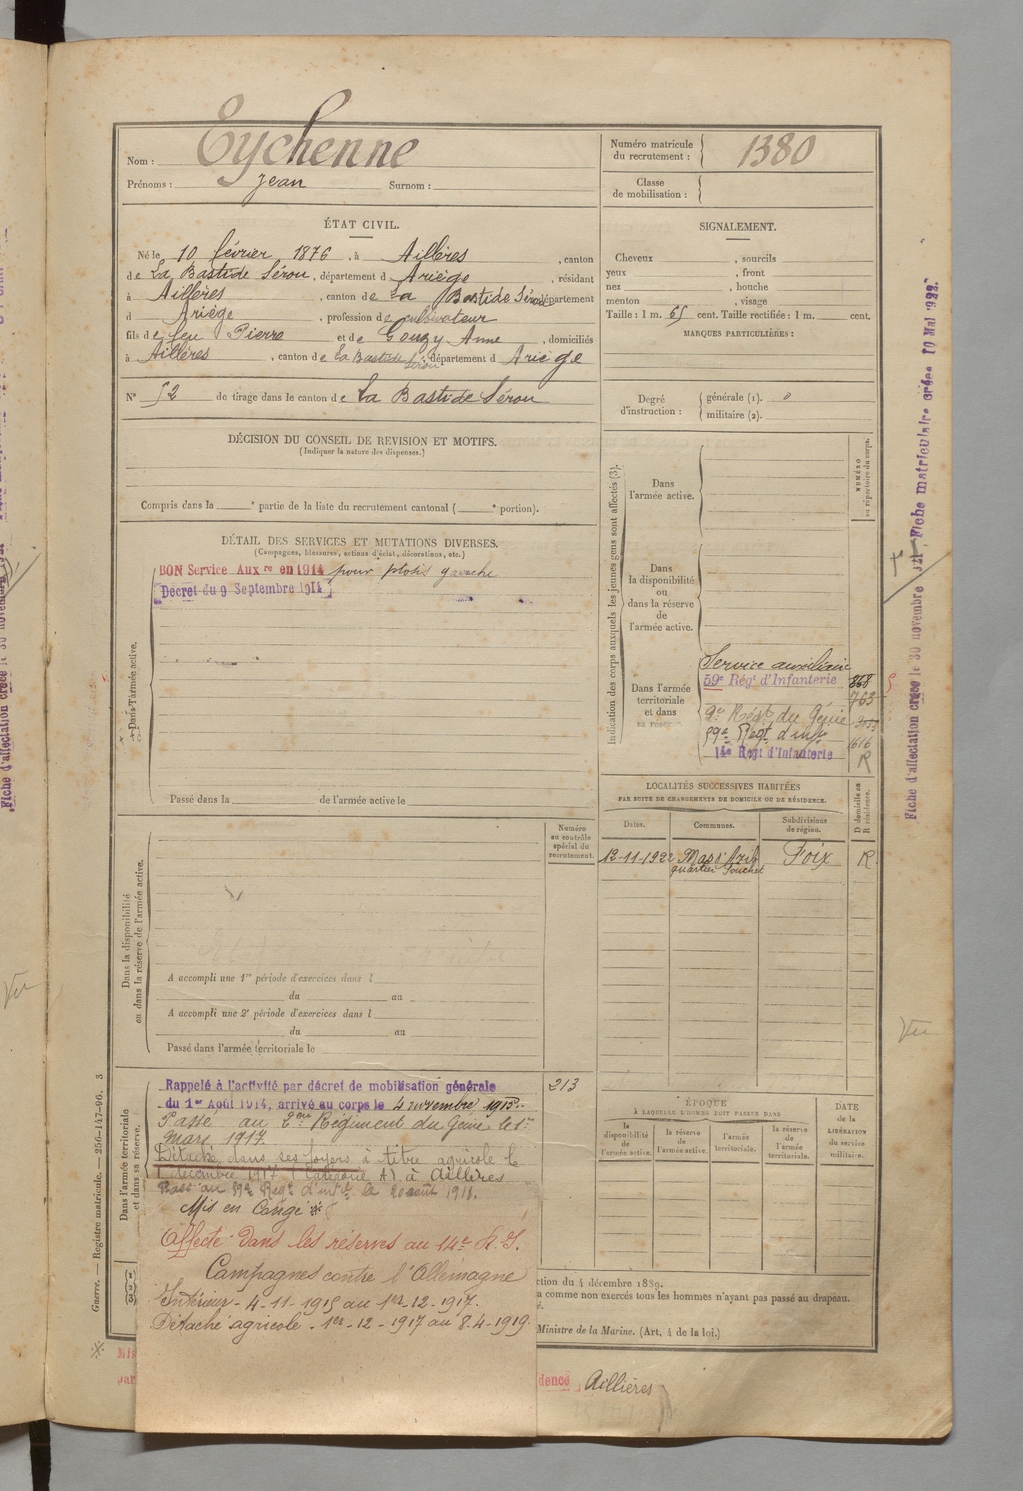 Nom : Eychenne
Prénoms : Jean Surnom :
Numéro matricule du recrutement : 1380
Classe de mobilisation :
ÉTAT CIVIL.
Né le 10 février 1876, à Aillères, canton
de La Bastide Sérou, département d Ariège, résidant
à Aillères, canton de La Bastide Sérou département
d Ariège, profession de cultivateur
fils de feu Pierre et de Gouzy Anne, domiciliés
à Aillères, canton de La Bastide Sérou, département d Ariège
N° 52 de tirage dans le canton de La Bastide Sérou
SIGNALEMENT.
Cheveux , sourcils
yeux , front
nez , bouche
menton , visage
Taille : 1 m. 65 cent. Taille rectifiée : 1 m. cent.
MARQUES PARTICULIÈRES :
Degré d'instruction : générale (1). 0
militaire (2).
DÉCISION DU CONSEIL DE REVISION ET MOTIFS.
(Indiquer la nature des dispenses.)
Compris dans la e partie de la liste du recrutement cantonal ( e portion).
DÉTAIL DES SERVICES ET MUTATIONS DIVERSES.
(Campagnes, blessures, actions d'éclat, décorations, etc.)
BON Service Aux re en 1914 pour
Décret du 9 Septembre 1914
Dans l'armée active.
Passé dans la de l'armée active le
Indication des corps auxquels les jeunes gens sont affectés (3).
NUMÉRO au répertoire du corps.
Dans l'armée active.
Dans la disponibilité ou dans la réserve de l'armée active.
Dans l'armée territoriale et dans sa réserve.
Service auxiliaire
59e Régt d'Infanterie 868
763
2e Régt du Génie
99e Régt d'inf 1616
14e Regt d'Infanterie R
LOCALITÉS SUCCESSIVES HABITÉES
PAR SUITE DE CHANGEMENTS DE DOMICILE OU DE RÉSIDENCE.
Dates. Communes. Subdivisions de région. D domicile ou R résidence.
12-11-1922 Mas d'Azil Foix R.
quartier
Numéro au contrôle spécial du recrutement.
Dans la disponibilité ou dans la réserve de l'armée active.
A accompli une 1re période d'exercices dans l
du au
A accompli une 2e période d'exercices dans l
du au
Passé dans l'armée territoriale le
Dans l'armée territoriale et dans sa réserve.
Rappelé à l'activité par décret de mobilisation générale 213
du 1er Août 1914, arrivé au corps le 4 novembre 1915.
Passé au 2e Régiment du Génie le 1er
mars 1917.
Détaché dans ses foyers à titre agricole le
1 décembre 1917 (Catégorie A) à Aillères
Passé au 99e Régt d'infie le 20 août 1918.
Mis en Congé
Affecté dans les réserves au 14e R.I.
Campagnes contre l'Allemagne
Intérieur - 4-11-1915 au 1er-12-1917.
Détaché agricole - 1er-12-1917 au 8-4-1919.
ÉPOQUE
À LAQUELLE L'HOMME DOIT PASSER DANS
la disponibilité de l'armée active. la réserve de l'armée active. l'armée territoriale. la réserve de l'armée territoriale.
DATE de la LIBÉRATION du service militaire.
ction du 4 décembre 1889.
a comme non exercés tous les hommes n'ayant pas passé au drapeau.
é.
Ministre de la Marine. (Art. 4 de la loi.)
Mis
par
dence Aillières
Guerre. — Registre matricule. — 256-147-96. 3
Fiche d'affectation créée le 30 novembre 1921, Fiche matriculaire créée 10 Mai 1922.
Vu
Vu
Fiche d'affectation créée le 30 novembre